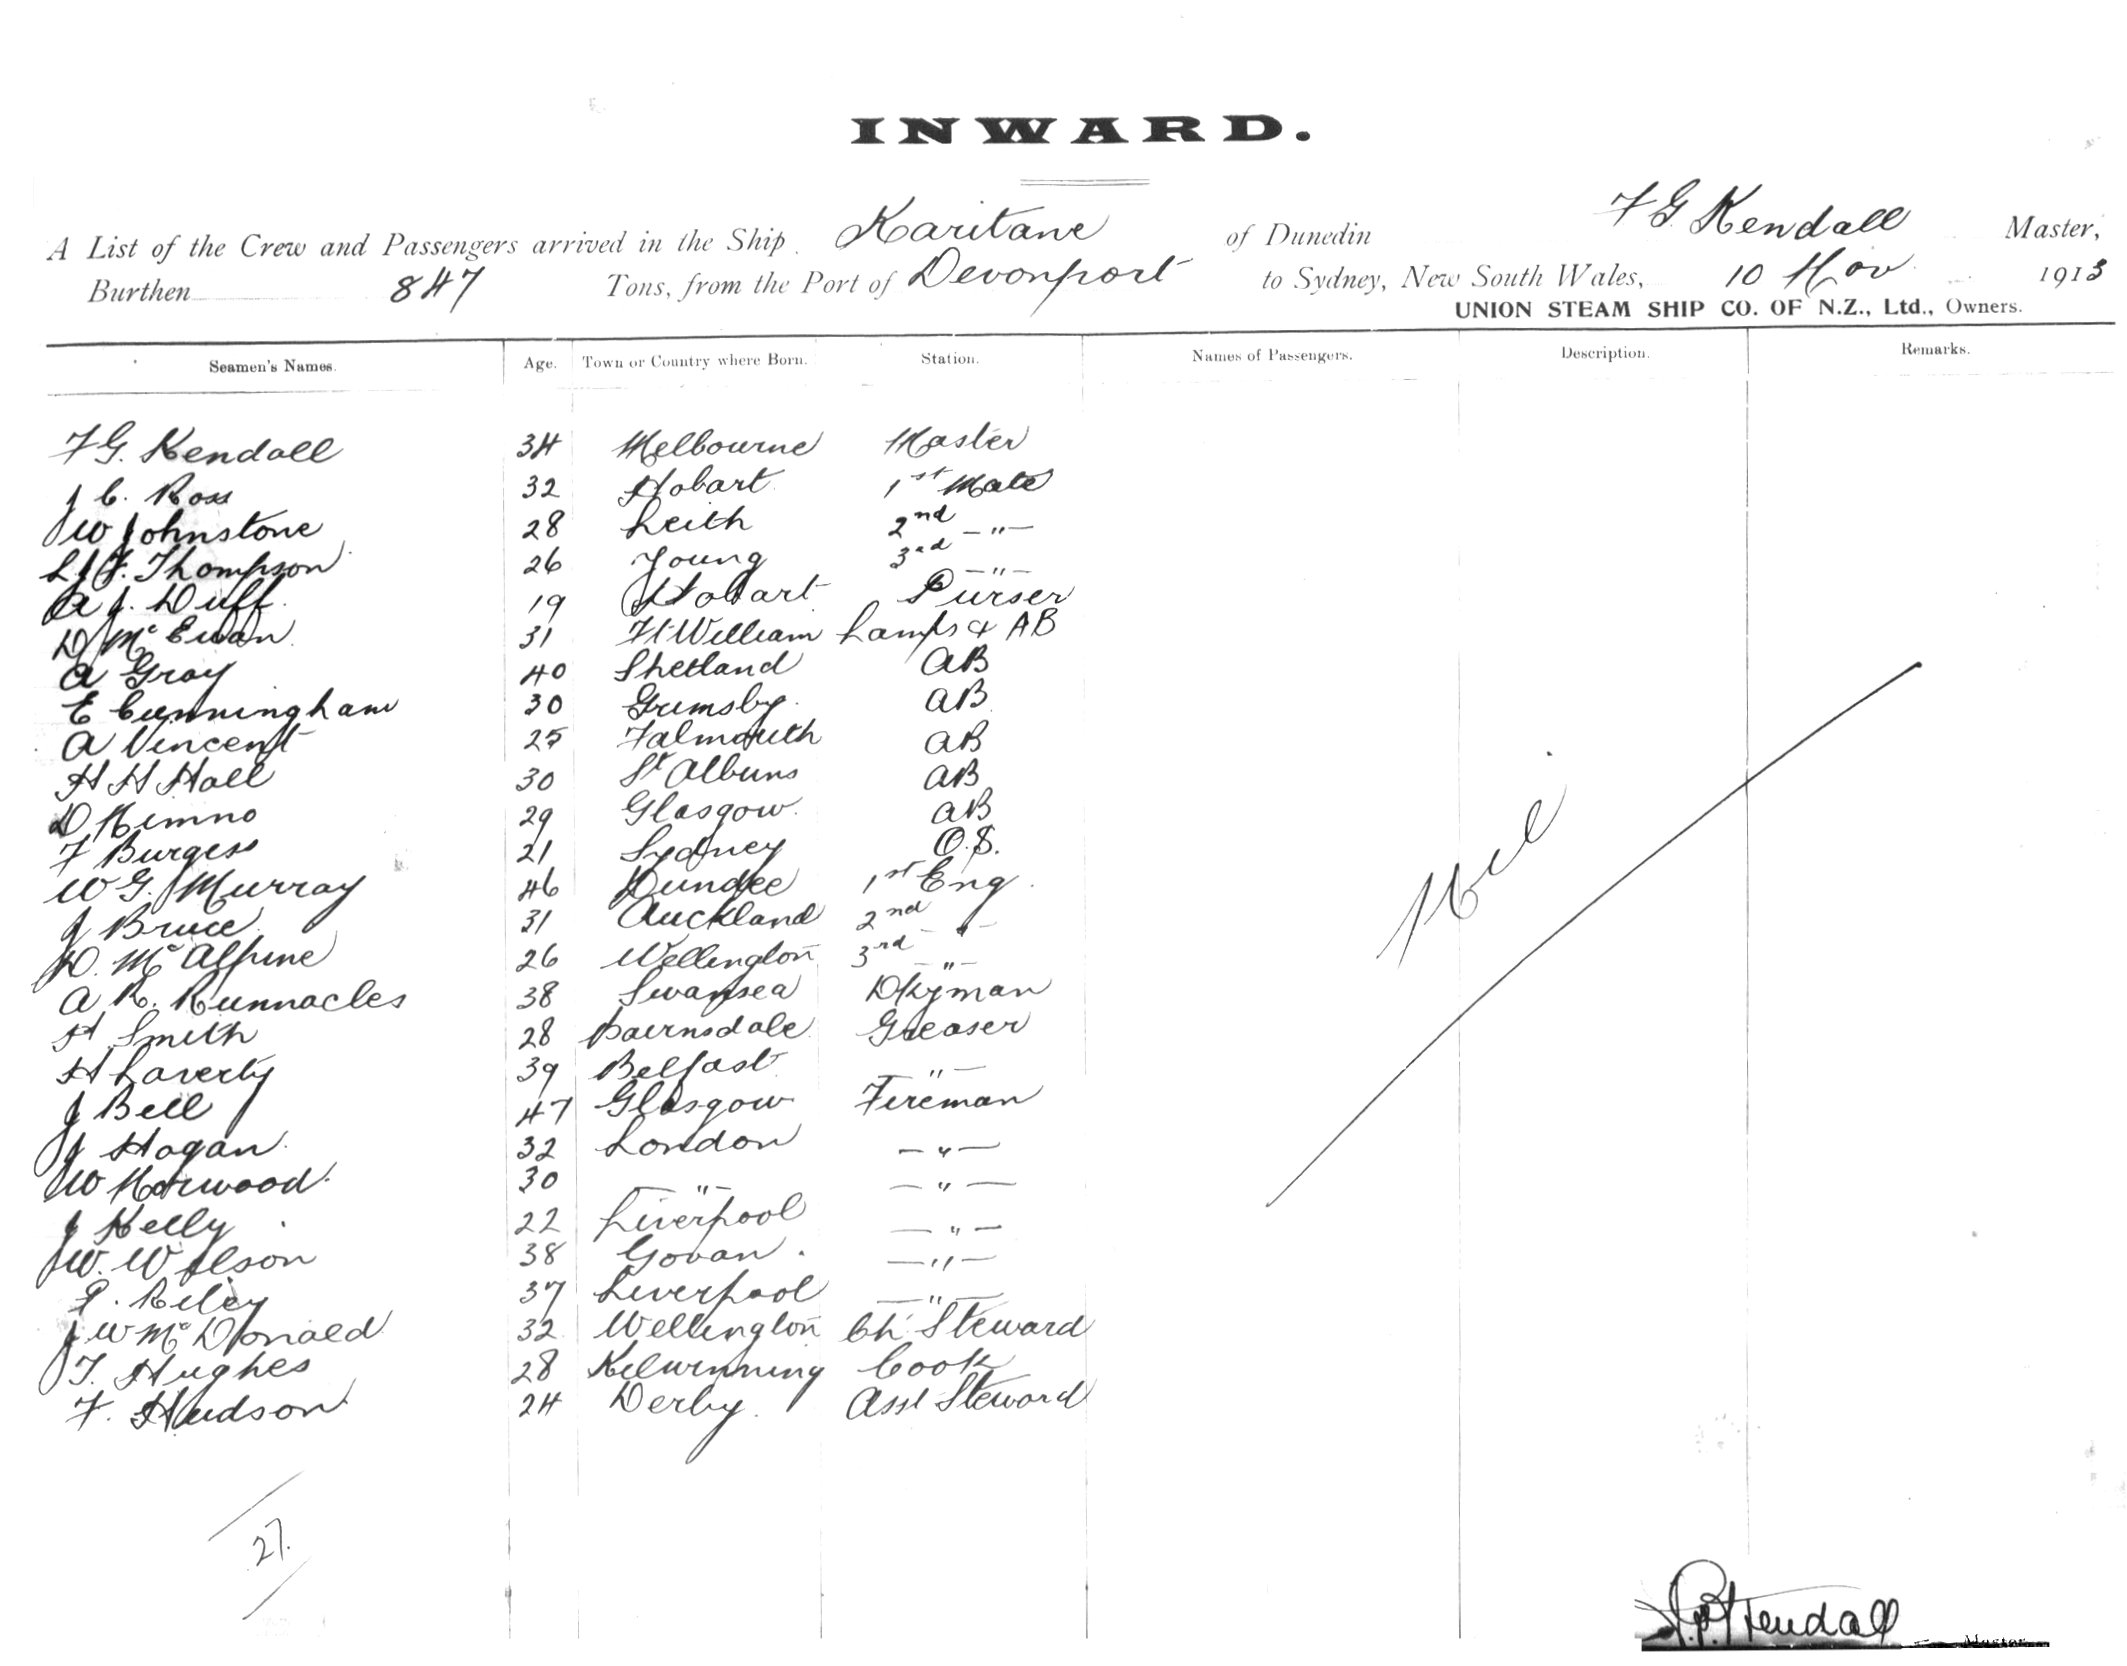 INWARD.
A List of the Crew and Passengers arrived in the Ship Karitane of Dunedin F G Kendall Master,
Burthen 847 Tons, from the Port of Devonport to Sydney, New South Wales, 10 Nov 1913
UNION STEAM SHIP CO. OF N.Z., Ltd., Owners.
Seamen's Names. Age. Town or Country where Born. Station. Names of Passengers. Description. Remarks.
F G. Kendall 34 Melbourne Master
J C. Ross 32 Hobart 1st Mate
W Johnstone 28 Leith 2nd —"—
L J F. Thompson 26 Young 3rd —"—
A J. Duff 19 Hobart Purser
D McEwan 31 Ft William Lamps & AB
A Gray 40 Shetland AB
E Cunningham 30 Grimsby AB
A Vincent 25 Falmouth AB
H H Hall 30 St Albans AB
D Kimno 29 Glasgow AB
F Burgess 21 Sydney O.S.
W G. Murray 46 Dundee 1st Eng
J Bruce 31 Auckland 2nd - " -
D. McAlpine 26 Wellington 3rd —"—
A R. Runnacles 38 Swansea Dkyman
H Smith 28 Bairnsdale Greaser
H Laverty 39 Belfast —"—
J Bell 47 Glasgow Fireman
J Hogan 32 London —"—
W Norwood 30 —"— —"—
J Kelly 22 Liverpool —"—
W. Wilson 38 Govan —"—
P. Riley 37 Liverpool —"—
J W McDonald 32 Wellington Ch Steward
T. Hughes 28 Kilwinning Cook
F. Hudson 24 Derby Asst Steward
Nil
27.
Kendall
Master